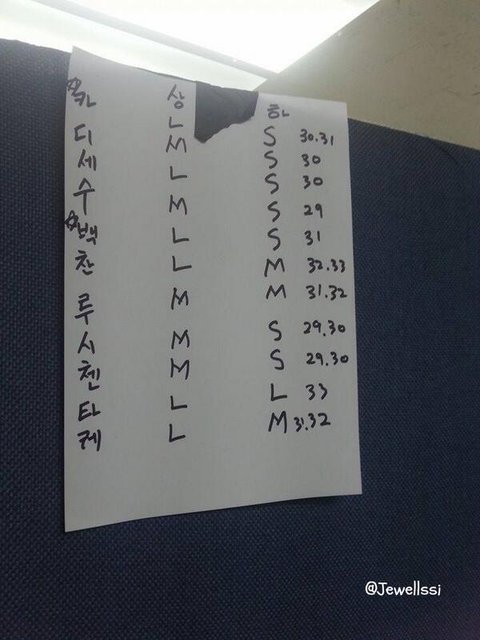 상 하
☆카 L S 30.31
디 M S 30
세 L S 30
수 M S 29
☆백 L S 31
찬 L M 32.33
루 M M 31.32
시 M S 29.30
첸 M S 29.30
타 L L 33
케 L M 31.32
@Jewellssi